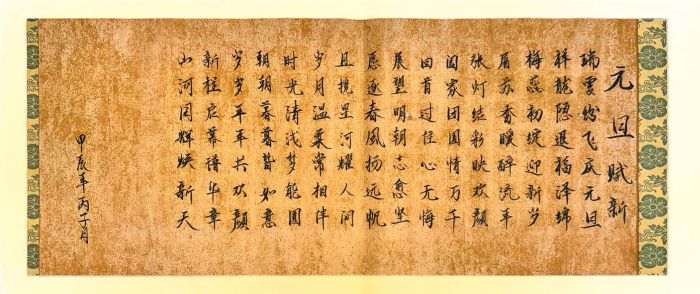 元旦赋新
瑞雲纷飞庆元旦
祥龍隐退福泽绵
梅蕊初绽迎新岁
屠苏香暖醉流年
张灯结彩映欢颜
国家团圆情万千
回首过往心无悔
展望明朝志愈坚
愿逐春風扬远帆
且揽星河耀人间
岁月温柔常相伴
时光清浅梦能圆
朝朝暮暮皆如意
岁岁年年共欢颜
新程启幕谱华章
山河同辉映新天
甲辰年丙子月